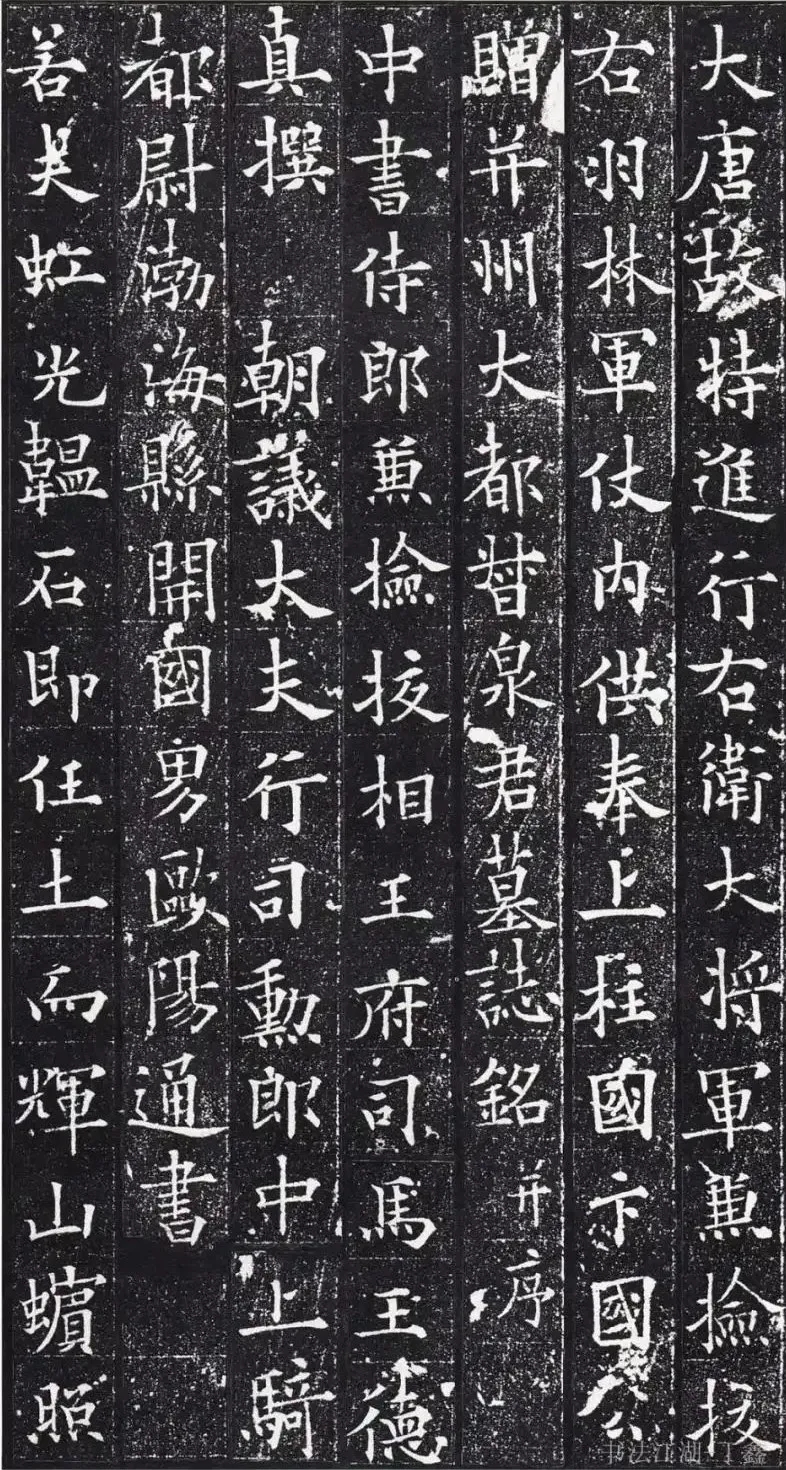 大唐故特進行右衛大将軍兼撿挍
右羽林軍仗内供奉上柱國卞國公
贈并州大都督泉君墓誌銘并序
中書侍郎兼撿挍相王府司馬王德
真撰 朝議大夫行司勳郎中上騎
都尉渤海縣開國男歐陽通書
若夫虹光韞石即任土而輝山蠙照
书法江湖 丁鑫